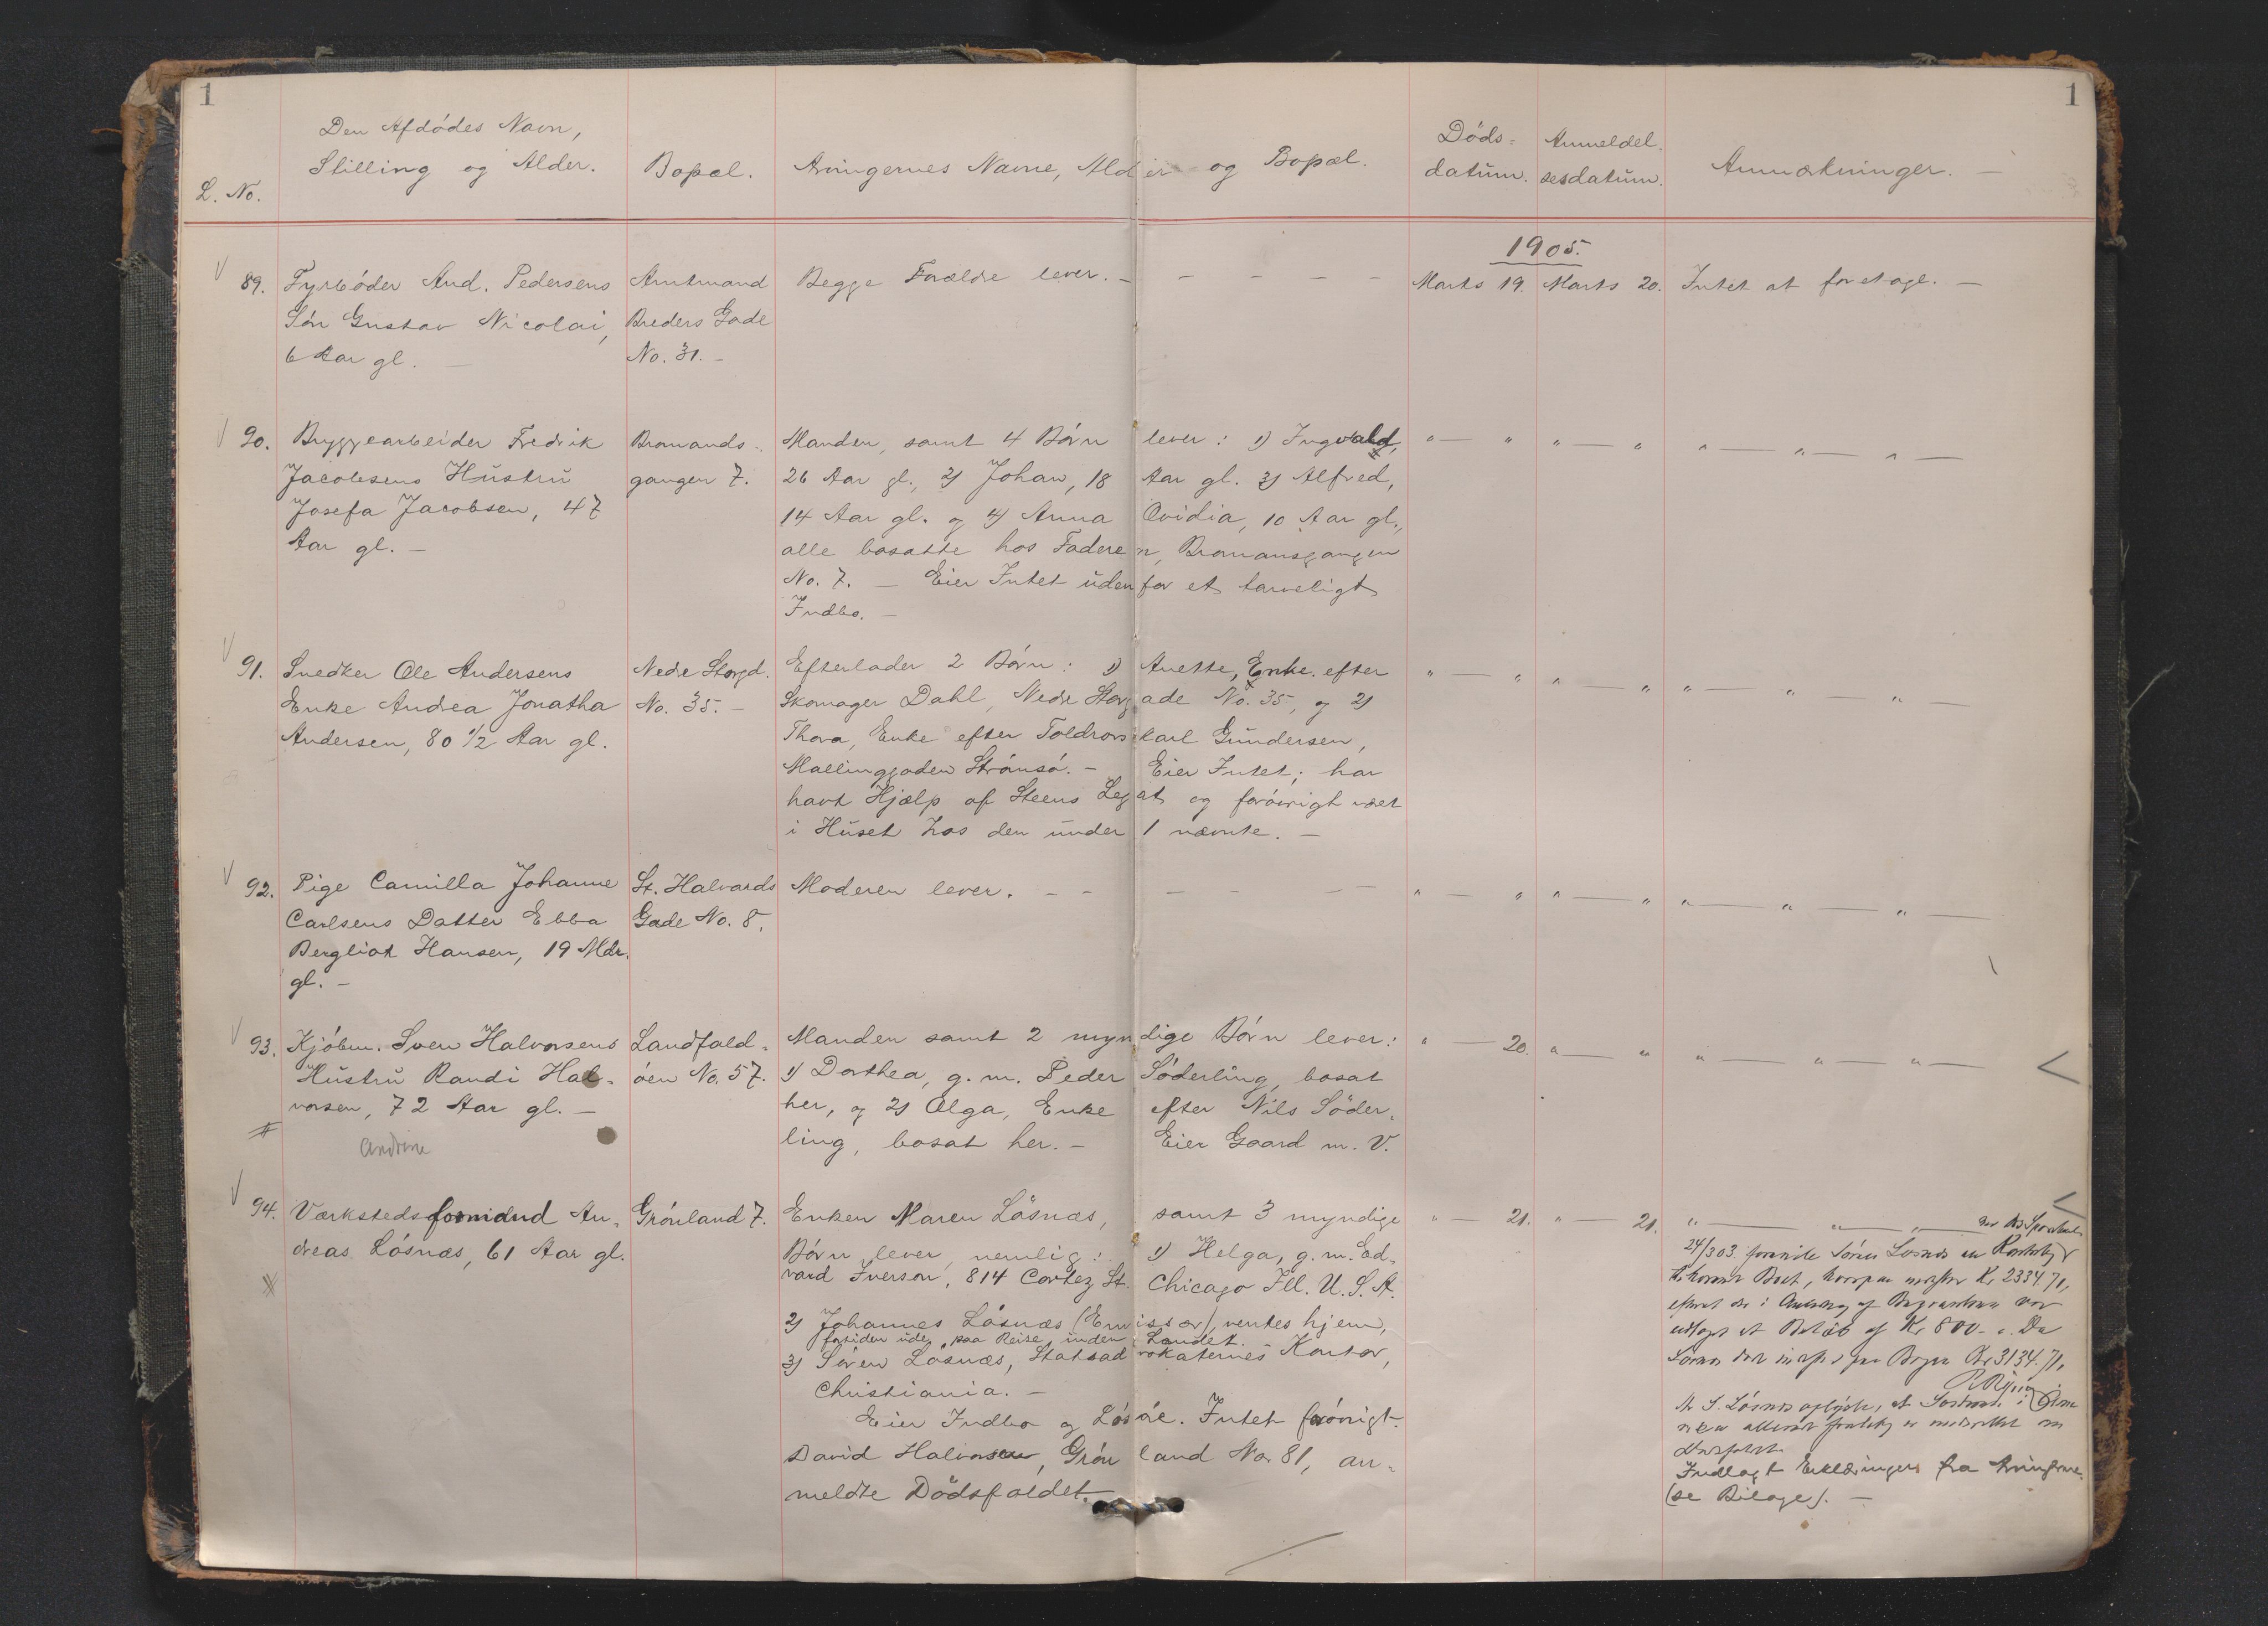 1
1
L. No.
Den Afdödes Navn,
Stilling og Alder.
Bopæl.
Arvingernes Navne, Alder og Bopæl.
Döds-
datum.
Anmeldel-
sesdatum.
Anmærkninger. —
1905.
89.
Fyrböder And. Pedersens
Sön Gustav Nicolai,
6 Aar gl. —
Amtmand
Breders Gade
No. 31. —
Begge Forældre lever. — — — — —
Marts 19.
Marts 20.
Intet at foretage. —
90.
Bryggearbeider Fredrik
Jacobsens Hustru
Josefa Jacobsen, 47
Aar gl. —
Bromands-
gangen 7.
Manden, samt 4 Börn lever: 1) Ingvald,
26 Aar gl., 2) Johan, 18 Aar gl. 3) Alfred,
14 Aar gl. og 4) Anna Ovidia, 10 Aar gl.,
alle bosatte hos Faderen, Bromansgangen
No. 7. — Eier Intet udenfor et tarveligt
Indbo. —
" — "
" — "
" — " — " —
91.
Snedker Ole Andersens
Enke Andrea Jonatha
Andersen, 80 1/2 Aar gl.
Nedre Storgd.
No. 35. —
Efterlader 2 Börn: 1) Anette, Enke efter
Skomager Dahl, Nedre Storgade No. 35, og 2)
Thora, Enke efter Toldrorskarl Gundersen,
Mallinggaden Strömsö. — Eier Intet; har
havt Hjælp af Steens Legat og forövrigt været
i Huset hos den under 1 nævnte. —
" — "
" — "
" — " — " —
92.
Pige Camilla Johanne
Carlsens Datter Ebba
Bergliot Hansen, 19 Mdr.
gl. —
St. Halvards
Gade No. 8.
Moderen lever. — — — — — —
" — "
" — "
" — " — " —
93.
Kjöbm. Sven Halvorsens
Hustru Randi Hal-
vorsen, 72 Aar gl. —
Andrine
Landfald-
öen No. 57.
Manden samt 2 myndige Börn lever:
1) Dorthea, g. m. Peder Söderling, bosat
her, og 2) Olga, Enke efter Nils Söder-
ling, bosat her. — Eier Gaard m. V.
" — 20.
" — "
" — " — " —
94.
Værkstedsformand An-
dreas Lösnæs, 61 Aar gl.
Grönland 7.
Enken Maren Lösnæs, samt 3 myndige
Börn lever, nemlig: 1) Helga, g. m. Ed-
vard Iverson, 814 Cortez St. Chicago Ill. U.S.A.
2) Johannes Lösnæs (Emissær), ventes hjem,
fortiden ude paa Reise inden Landet.
3) Sören Lösnæs, Statsadvokaternes Kontor,
Christiania. —
Eier Indbo og Lösöre. Intet forövrigt.
David Halvorsen, Grönland No. 81, an-
meldte Dödsfaldet.
" — 21.
" — 21.
" — " — "
24/3 03 Sören Lösnæs en
Boet, Kr. 2334.71,
af Begravelsen var
udtaget et Beløb af Kr. 800.-
Kr. 3134.71,
S. Lösnæs oplyste, at
Indlagt Erklæringer fra Arvingerne
(se Bilage). —